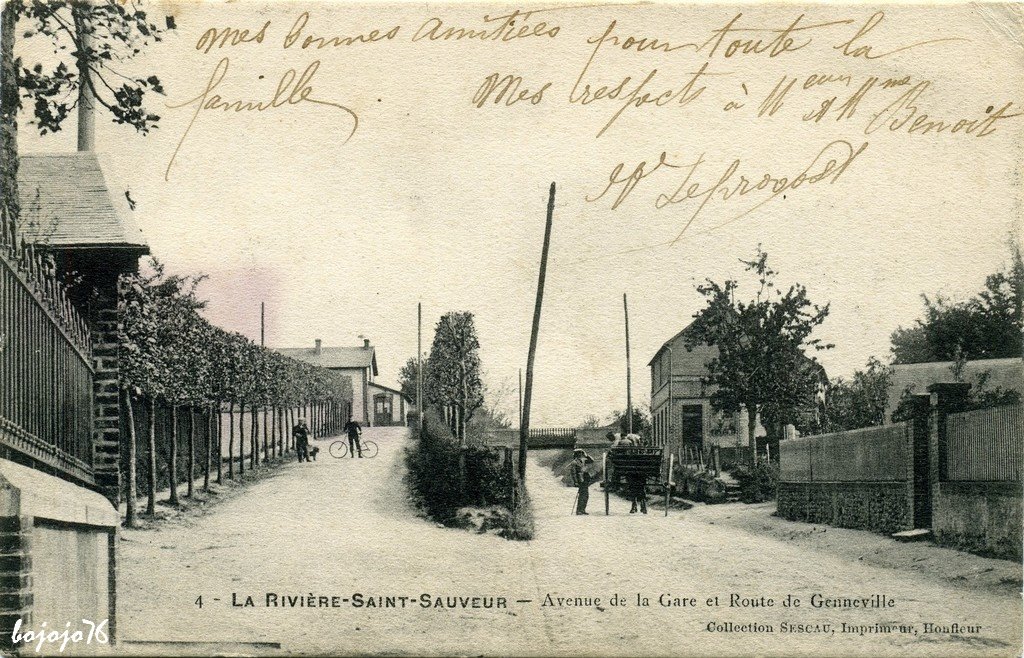 Mes bonnes amitiées pour toute la
famille Mes respects à Meur et Mme Benoit
Mr Leprovost
4 - LA RIVIÈRE-SAINT-SAUVEUR — Avenue de la Gare et Route de Genneville
Collection SESCAU, Imprimeur, Honfleur
bojojo76